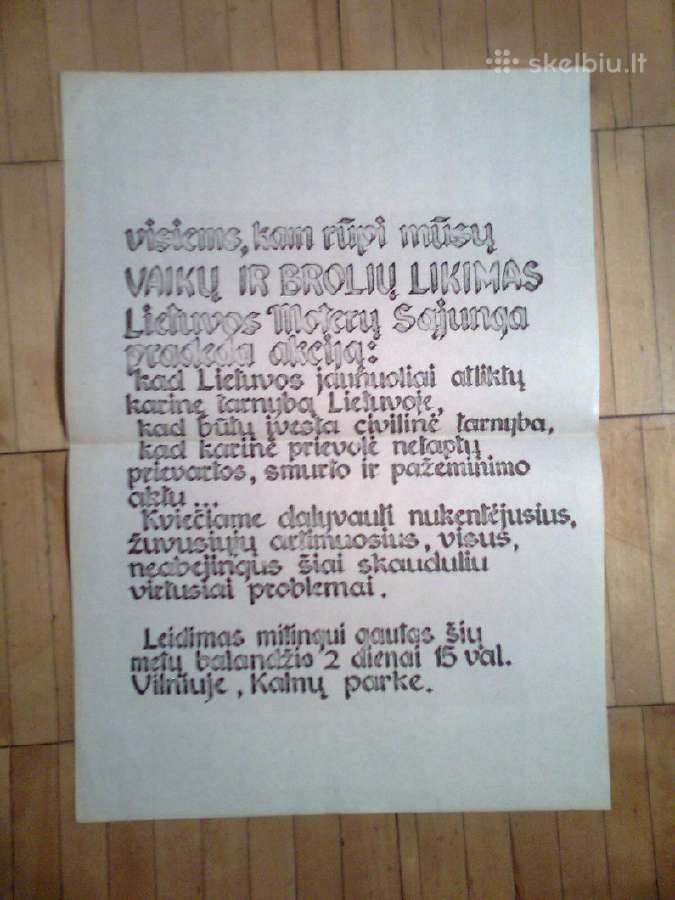 skelbiu.lt
visiems, kam rūpi mūsų
VAIKŲ IR BROLIŲ LIKIMAS
Lietuvos Moterų Sąjunga
pradeda akciją:
kad Lietuvos jaunuoliai atliktų
karinę tarnybą Lietuvoje,
kad būtų įvesta civilinė tarnyba,
kad karinė prievolė netaptų
prievartos, smurto ir pažeminimo
aktu...
Kviečiame dalyvauti nukentėjusius,
žuvusiųjų artimuosius, visus,
neabejingus šiai skauduliu
virtusiai problemai.
Leidimas mitingui gautas šių
metų balandžio 2 dienai 15 val.
Vilniuje, Kalnų parke.